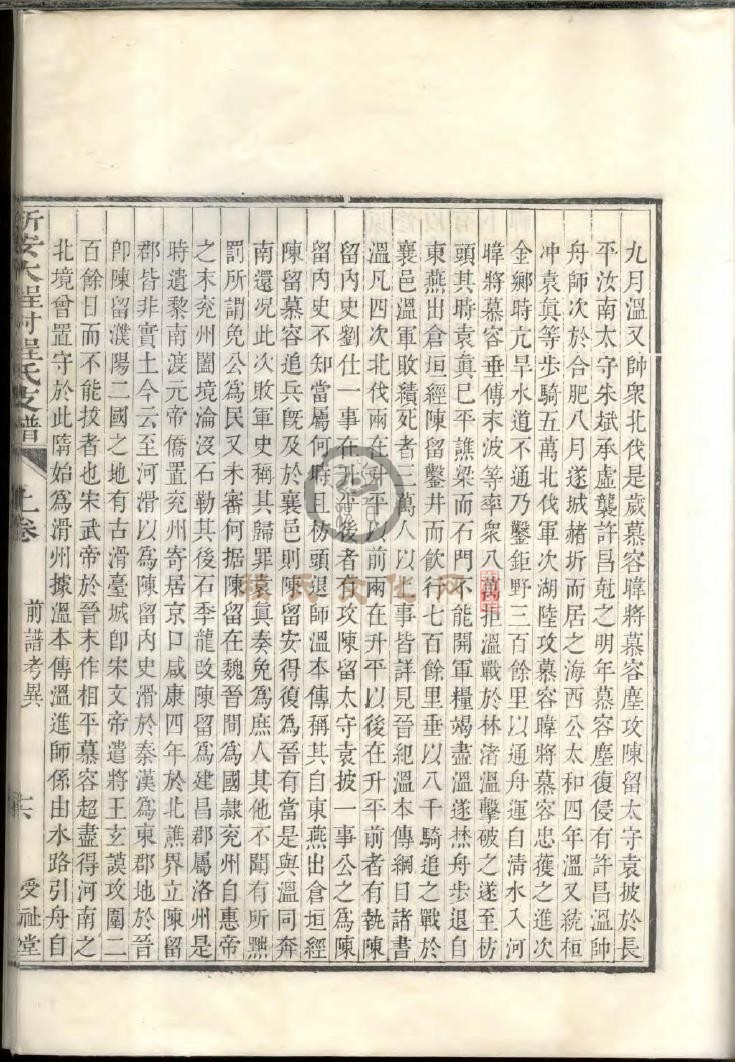 九月溫又帥衆北伐是歲慕容暐將慕容塵攻陳留太守袁披於長
平汝南太守朱斌承虛襲許昌尅之明年慕容塵復侵有許昌溫帥
舟師次於合肥八月遂城赭圻而居之海西公太和四年溫又統桓
冲袁真等步騎五萬北伐軍次湖陸攻慕容暐將慕容忠獲之進次
金鄉時亢旱水道不通乃鑿鉅野三百餘里以通舟運自清水入河
暐將慕容垂傅末波等率衆八萬拒溫戰於林渚溫擊破之遂至枋
頭其時袁真已平譙梁而石門不能開軍糧竭盡溫遂㷊舟步退自
東燕出倉垣經陳留鑿井而飲行七百餘里垂以八千騎追之戰於
襄邑溫軍敗績死者三萬人以上事皆詳見晉紀溫本傳綱目諸書
溫凡四次北伐兩在升平以前兩在升平以後在升平前者有執陳
留內史劉仕一事在升平後者有攻陳留太守袁披一事公之爲陳
留內史不知當屬何時且枋頭退師溫本傳稱其自東燕出倉垣經
陳留慕容追兵旣及於襄邑則陳留安得復爲晉有當是與溫同奔
南還况此次敗軍史稱其歸罪袁真奏免爲庶人其他不聞有所黜
罰所謂免公爲民又未審何据陳留在魏晉間爲國隸兖州自惠帝
之末兖州闔境淪沒石勒其後石季龍改陳留爲建昌郡屬洛州是
時遺黎南渡元帝僑置兖州寄居京口咸康四年於北譙界立陳留
郡皆非實土今云至河滑以爲陳留內史滑於秦漢爲東郡地於晉
卽陳留濮陽二國之地有古滑臺城卽宋文帝遣將王玄謨攻圍二
百餘日而不能拔者也宋武帝於晉末作相平慕容超盡得河南之
北境曾置守於此隋始爲滑州據溫本傳溫進師係由水路引舟自
新安大程村程氏支譜
上卷
前譜考異
受祉堂